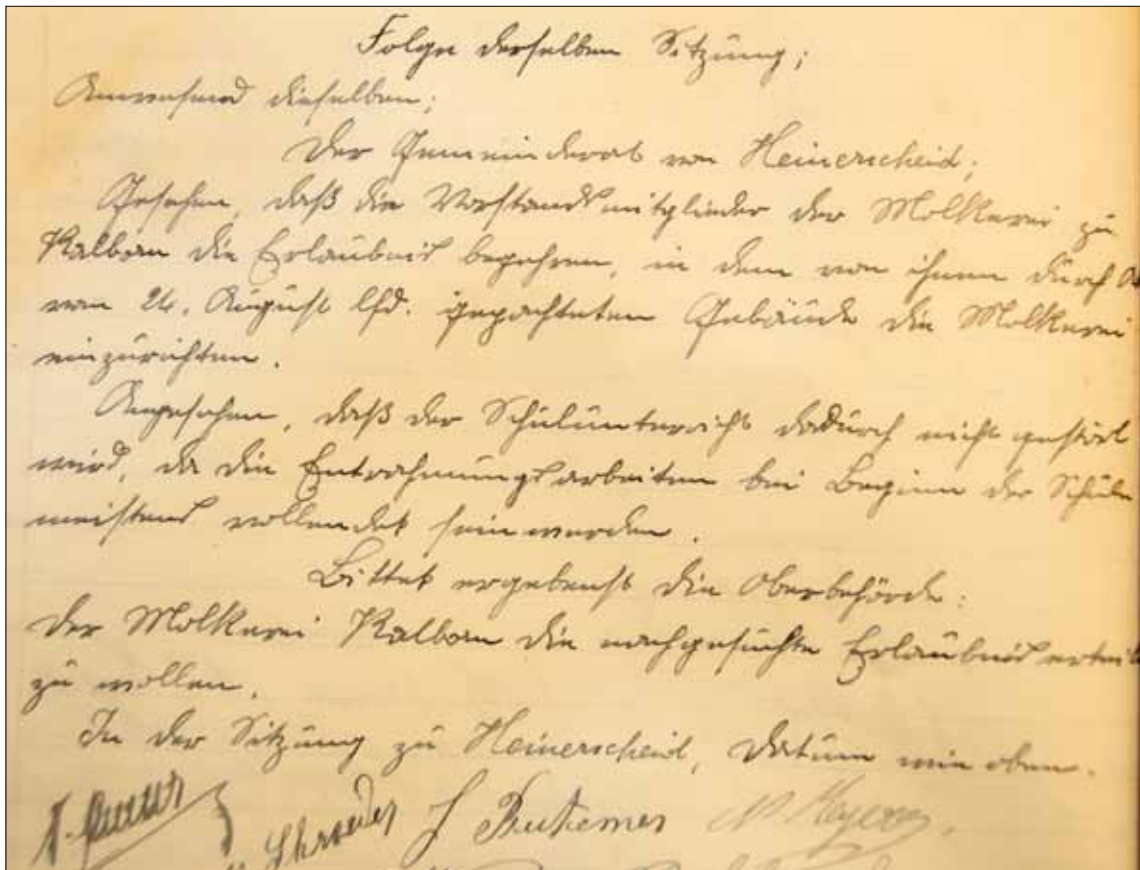 Folge derselben Sitzung;
Anwesend dieselben;
Der Gemeinderat von Heinerscheid;
Gesehen, daß die Vorstandsmitglieder der Molkerei zu
Kalborn die Erlaubnis begehren, in dem von ihnen durch
vom 24. August lfd. gepachteten Gebäude die Molkerei
einzurichten.
Angesehen, daß der Schulunterricht dadurch nicht gestört
wird, da die Entrahmungsarbeiten bei Beginn der Schule
meistens vollendet sein werden.
Bittet ergebenst die Oberbehörde:
Der Molkerei Kalborn die nachgesuchte Erlaubnis erteil
zu wollen.
In der Sitzung zu Heinerscheid, Datum wie oben.
Schroeder J N. Meyers